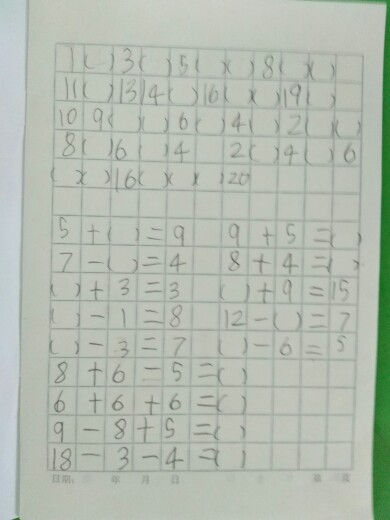 1( )3( )5( × )8( × )
11( )13 14( )16( × )19( )
10 9( × )6( )4( )2( × )
8( )6( )4 2( )4( )6
( × )16( × × )20
5+( )=9 9+5=( )
7-( )=4 8+4=( )
( )+3=3 ( )+9=15
( )-1=8 12-( )=7
( )-3=7 ( )-6=5
8+6-5=( )
6+6+6=( )
9-8+5=( )
18-3-4=( )
日期: 年 月 日